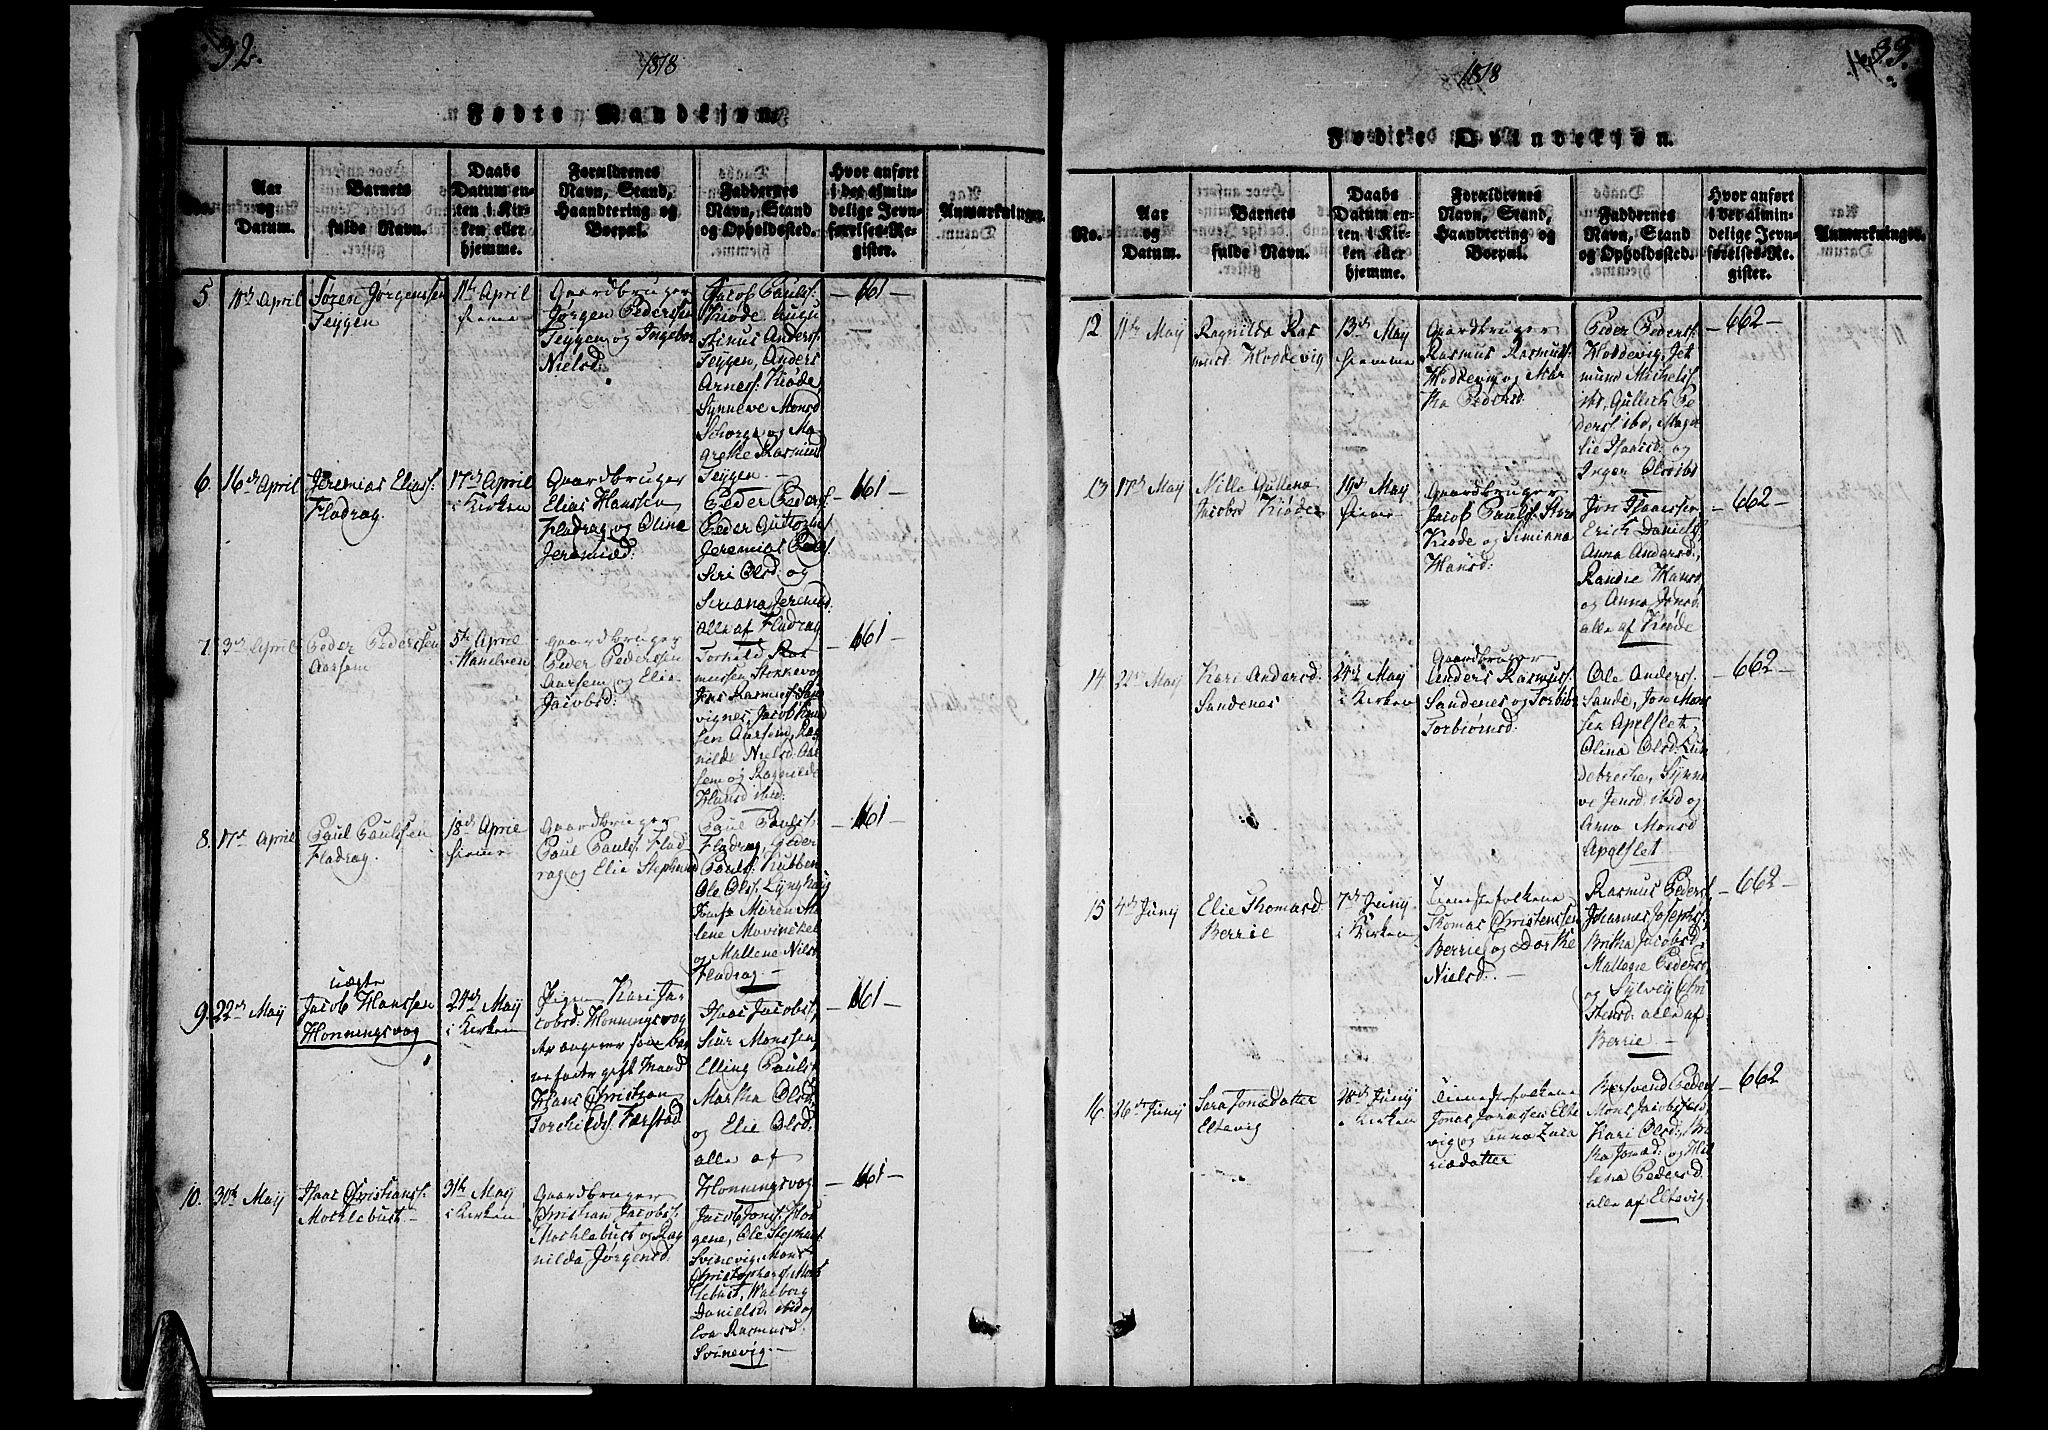 32.
1818
Fødte Mandkjøn.
Aar og Datum.
Barnets fulde Navn.
Daabs Datum enten i Kirken eller hjemme.
Forældrenes Navn, Stand, Haandtering og Boepæl.
Faddernes Navn, Stand og Opholdssted.
Hvor anført i det almindelige Jevnførelses-Register.
Anmærkninger.
5
11te April
Søren Jørgenssen
Teygen
11te April
hiemme
Gaardbruger
Jørgen Pederssen
Teygen og Ingebor
Nielsd:
Jacob Paulss:
Kiøde Augu
stinus Anderss:
Teygen, Anders
Arness: Kiøde
Synneve Monsd
og Ma
grethe Rasmusd
Teygen —
— 661 —
6.
16de April
Jeremias Eliass:
Fladrag.
17de April
i Kirken
Gaardbruger
Elias Hanssen
Fladrag og Olina
Jeremiæd:
Peder Pederss
Peder Guttormss
Jeremias Peders
Siri Olsd: og
Siriana Jeremd:
alle af Fladrag
— 661 —
7.
3de April
Peder Pederssen
Aarsem
5te April
i Hanelven
Gaardbruger
Peder Pederssen
Aarsem og Elie
Jacobsd:
Torkild Ras
mussen Stokkevog
Jens Rasmuss San
vignes, Jacob Han
sen Aarsem, Rag
nilde Nielsd: Aar
sem og Ragnilde
Hansd ibid:
— 661 —
8.
17de April
Paul Paulssen
Fladrag.
18de April
hiemme
Gaardbruger
Paul Paulss: Flad
rag og Elie Stephansd
Paul Paulss:
Fladrag, Peder
Paulss: Kubben
Ole Olss. Lynghoug
Jomfr Maren Ma
lene Movinckel
og Mallene Nilsd
Fladrag —
— 661 —
9.
22de May
uægte
Jacob Hanssen
Honningsvog
24de May
i Kirken
Pigen Kari Ja
cobsd: Honningsvog
Angiver som Bar
nefader gift Mand
Hans Christian
Torkilds: Farstad
Isaac Jacobss,
Siur Monssen,
Elling Paulss
Martha Olsd:
og Elie Olsd:
alle af
Honningsvog
— 661 —
10.
30te May
Isaac Christianss:
Mochlebust —
31te May
i Kirken
Gaardbruger
Christian Jacobss:
Mochlebust og Rag
nilda Jørgensd:
Jacob Jonss:
gene, Ole Stephanss
Svinevig, Mons
Christophers Moch
lebust, Walborg
Danielsd: ibid og
Eva Rasmusd:
Svinevig. —
— 661 —
33.
1818
Fødte Qvindekjøn.
No.
Aar og Datum.
Barnets fulde Navn.
Daabs Datum enten i Kirken eller hjemme.
Forældrenes Navn, Stand, Haandtering og Boepæl.
Faddernes Navn, Stand og Opholdssted.
Hvor anført i det almindelige Jevnførelses-Register.
Anmærkninger.
12
11te May
Ragnilda Ras
musd Hoddevig
13de May
hiemme
Gaardbruger
Rasmus Rasmuss:
Hoddevig og Mar
tha Pedersd:
Peder Pederss
Hoddevig, Jet
mund Michelss
ibd, Gullich Pe
derss ibd, Mage
lie Isaacsd: og
Inger Olsd ibd
— 662 —
13
17de May
Nille Gullena
Jacobsd Kiøde
19de May
hiemme
Gaardbruger
Jacob Paulss: Store
Kiøde og Simiana
Hansd:
Jon Isaacssen
Erich Daniels:
Anna Andersd:,
Randie Hansd
og Anna Jonsd:
alle af Kiøde
— 662 —
14
22de May
Kari Andersd:
Sandenes
24de May
i Kirken
Gaardbruger
Anders Rasmuss:
Sandenes og Torbiør
Torbiørnsd:
Ole Anderss:
Sande, Jon Mons
sen Apelset,
Olina Olsd: Lin
debrekke, Synne
ve Jensd: ibid og
Anna Monsd
Apelset
— 662 —
15
4de Junÿ
Elie Thomasd:
Berrie
7de Junÿ
i Kirken
Tienestefolkene
Thomas Christenssen
Berrie og Dorthe
Nielsd: —
Rasmus Peders,
Johannes Josephss,
Britha Jacobsd:
Mallene Pedersd
og Sylvig Chri
stensd: alle af
Berrie. —
— 662 —
16
26de Junÿ
Sara Jonædatter
Eltevig
28de Junÿ
i Kirken
Tienestefolkene
Jonas Jonassen Elte
vig og Anna Zacha
riædatter
Bersvend Peders
Mons Jacobss ibd,
Kari Olsd:,
tha Jonæd: og He
lena Pedersd
alle af Eltevig
— 662